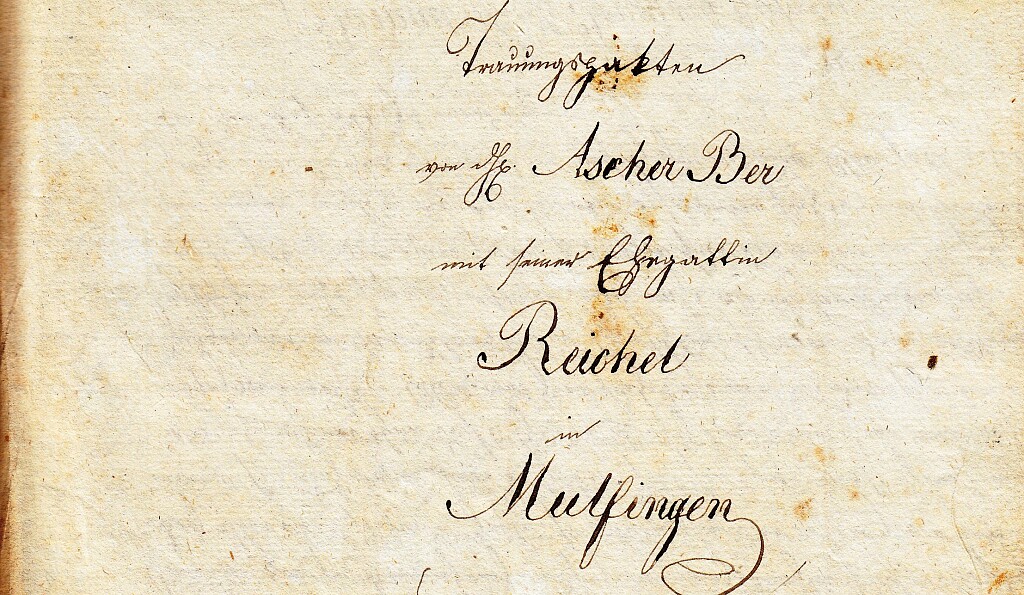 Trauungspakten
von Ascher Ber
mit seiner Ehegattin
Reichel
in
Mulfingen